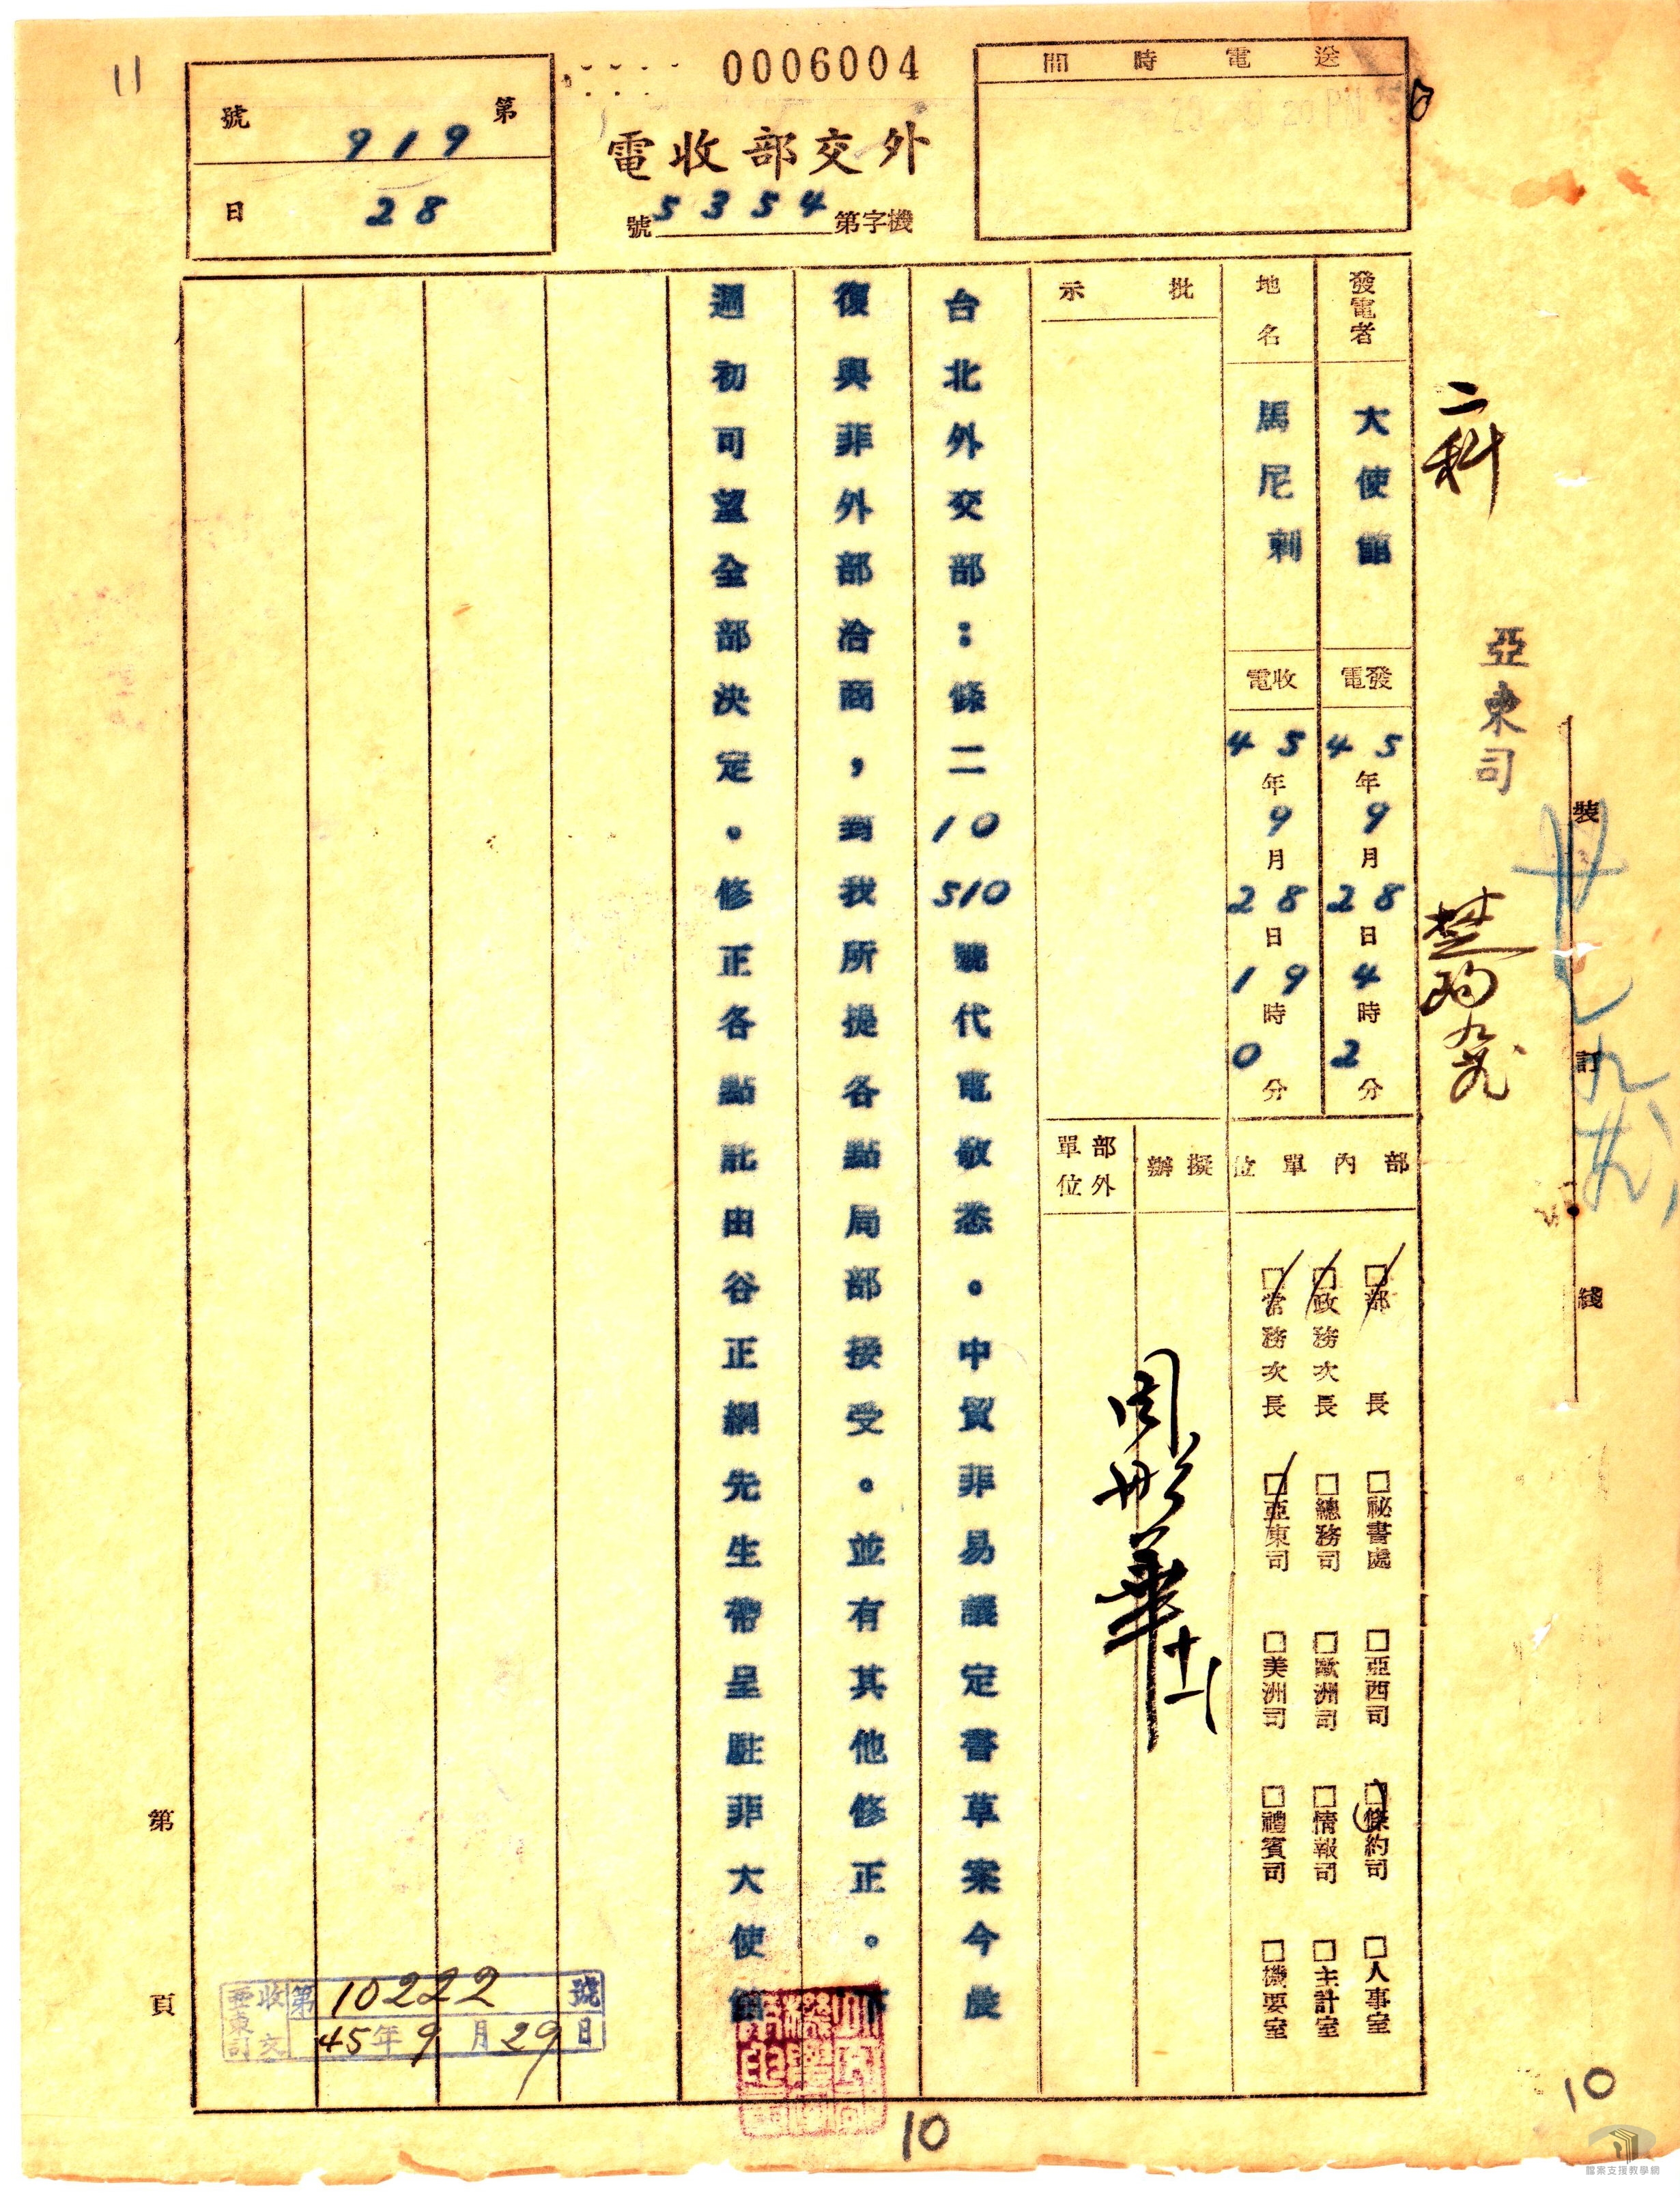 11
0006004
送電時間
第919號
28日
外交部收電
機字第5354號
二科
亞東司
裝
訂
線
發電者 大使館
發電 45年9月28日4時2分
地名 馬尼剌
收電 45年9月28日19時0分
批示
部內單位
擬辦
部外單位
□部長 □祕書處 □亞西司 □條約司 □人事室
□政務次長 □總務司 □歐洲司 □情報司 □主計室
□常務次長 □亞東司 □美洲司 □禮賓司 □機要室
周彤華
台北外交部:條二10510號代電敬悉。中貿菲易議定書草案今晨
復與非外部洽商,到我所提各點局部接受。並有其他修正。下
週初可望全部決定。修正各點託由谷正綱先生帶呈駐菲大使館
亞東司收文第10222號
45年9月29日
第
頁
10
10
檔案支援教學網